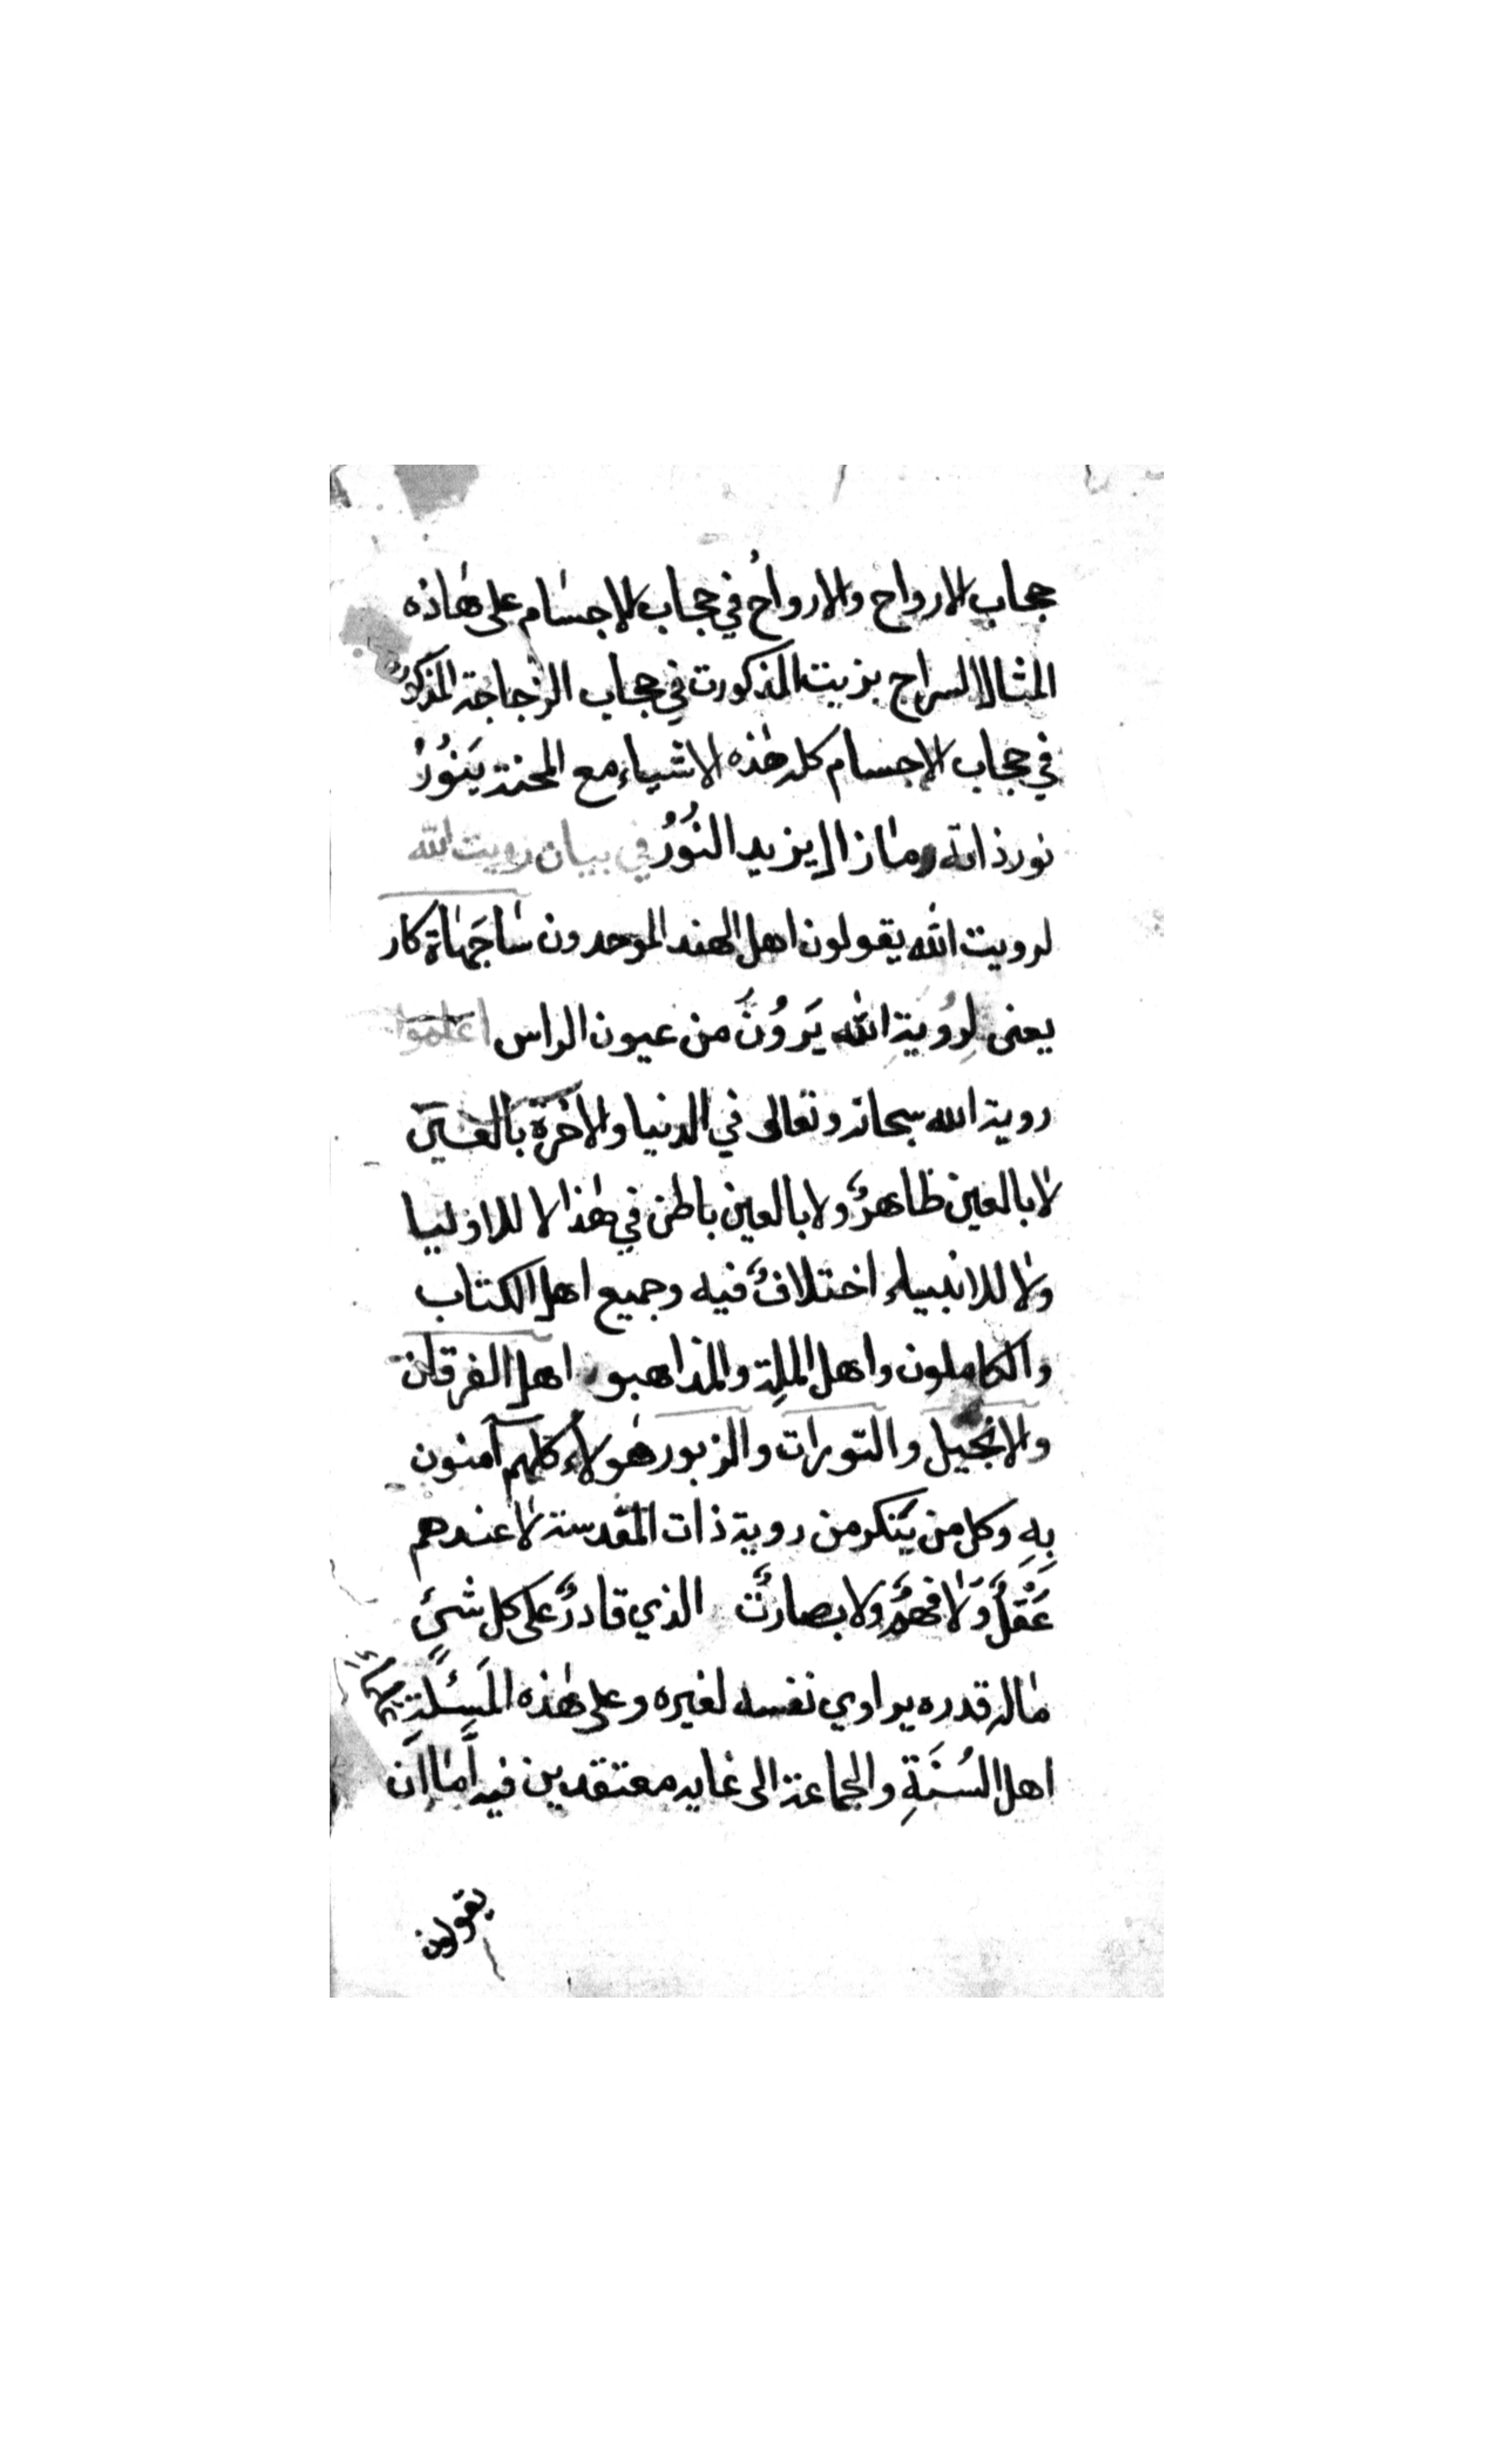 حجاب الارواح والارواحُ في حجاب الاجسام على هٰاذه
المثالا السراج بزيت المذكورت في حجاب الزجاجة المذكورة
في حجاب الاجسام كله هٰذه الاشياء مع المحنة يَنوُرُ
نور ذاته وما زالا يزيد النُورُ في بيان رويت الله
لرويت الله يقولون اهل الهند الموحدون سٰاجَهٰاة كار
يعنى لِرُوية الله يَرَوُنَ من عيون الراس اعلموا
روية الله سبحانه وتعالى في الدنيا والاخرة بالعين
لا بالعين ظاهرٌ ولا بالعين باطن في هٰذا لا للاوليا
ولا للانبياء اختلافٌ فيه وجميع اهل الكتاب
والكاملون واهل الملة والمذاهب و اهل الفرقان
والانجيل والتورات والزبور هٰولاء كلهم آمنون
بِهِ وكل من يَنكر من روية ذات المقدسة لا عندهم
عَقْلٌ وَلا فهمٌ ولا بصارتٌ الذي قادرٌ على كل شيءٍ
مٰا له قدره يراوي نفسه لغيره وعلى هٰذه المَسِئلَةِ
اهل السُنَةِ والجماعة الى غايه معتقدين فيه اَمّا اَن
يقولون